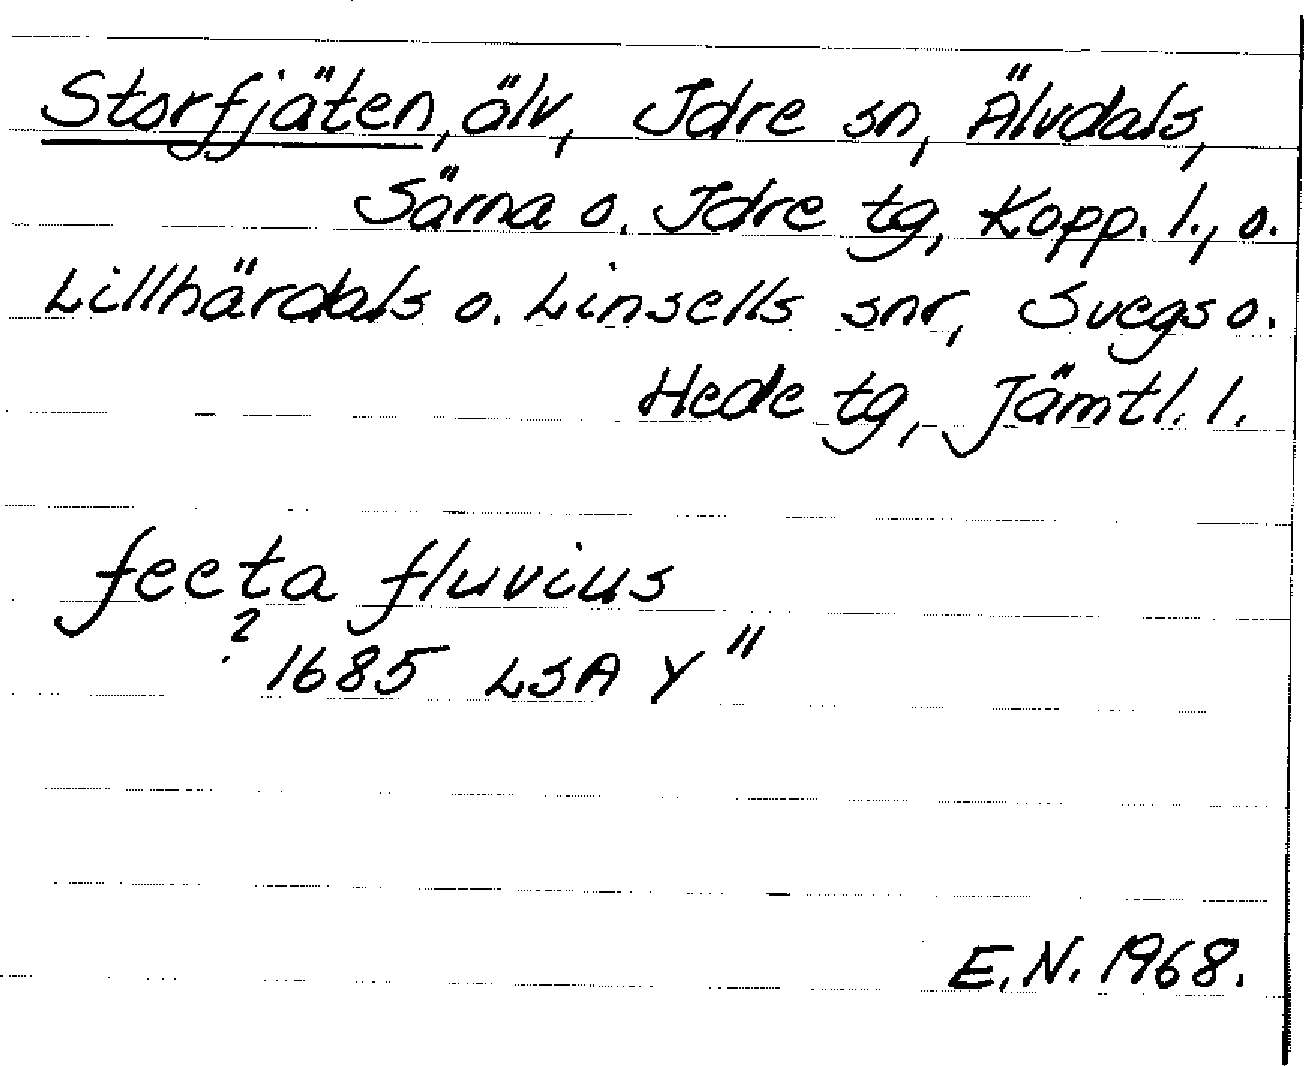 Storfjäten, älv, Idre sn, Älvdals,
Särna o. Idre tg, Kopp. l., o.
Lillhärdals o. Linsells snr, Svegs o.
Hede tg, Jämtl. l.
feeta fluvius
?
1685 LSA Y"
E.N. 1968.